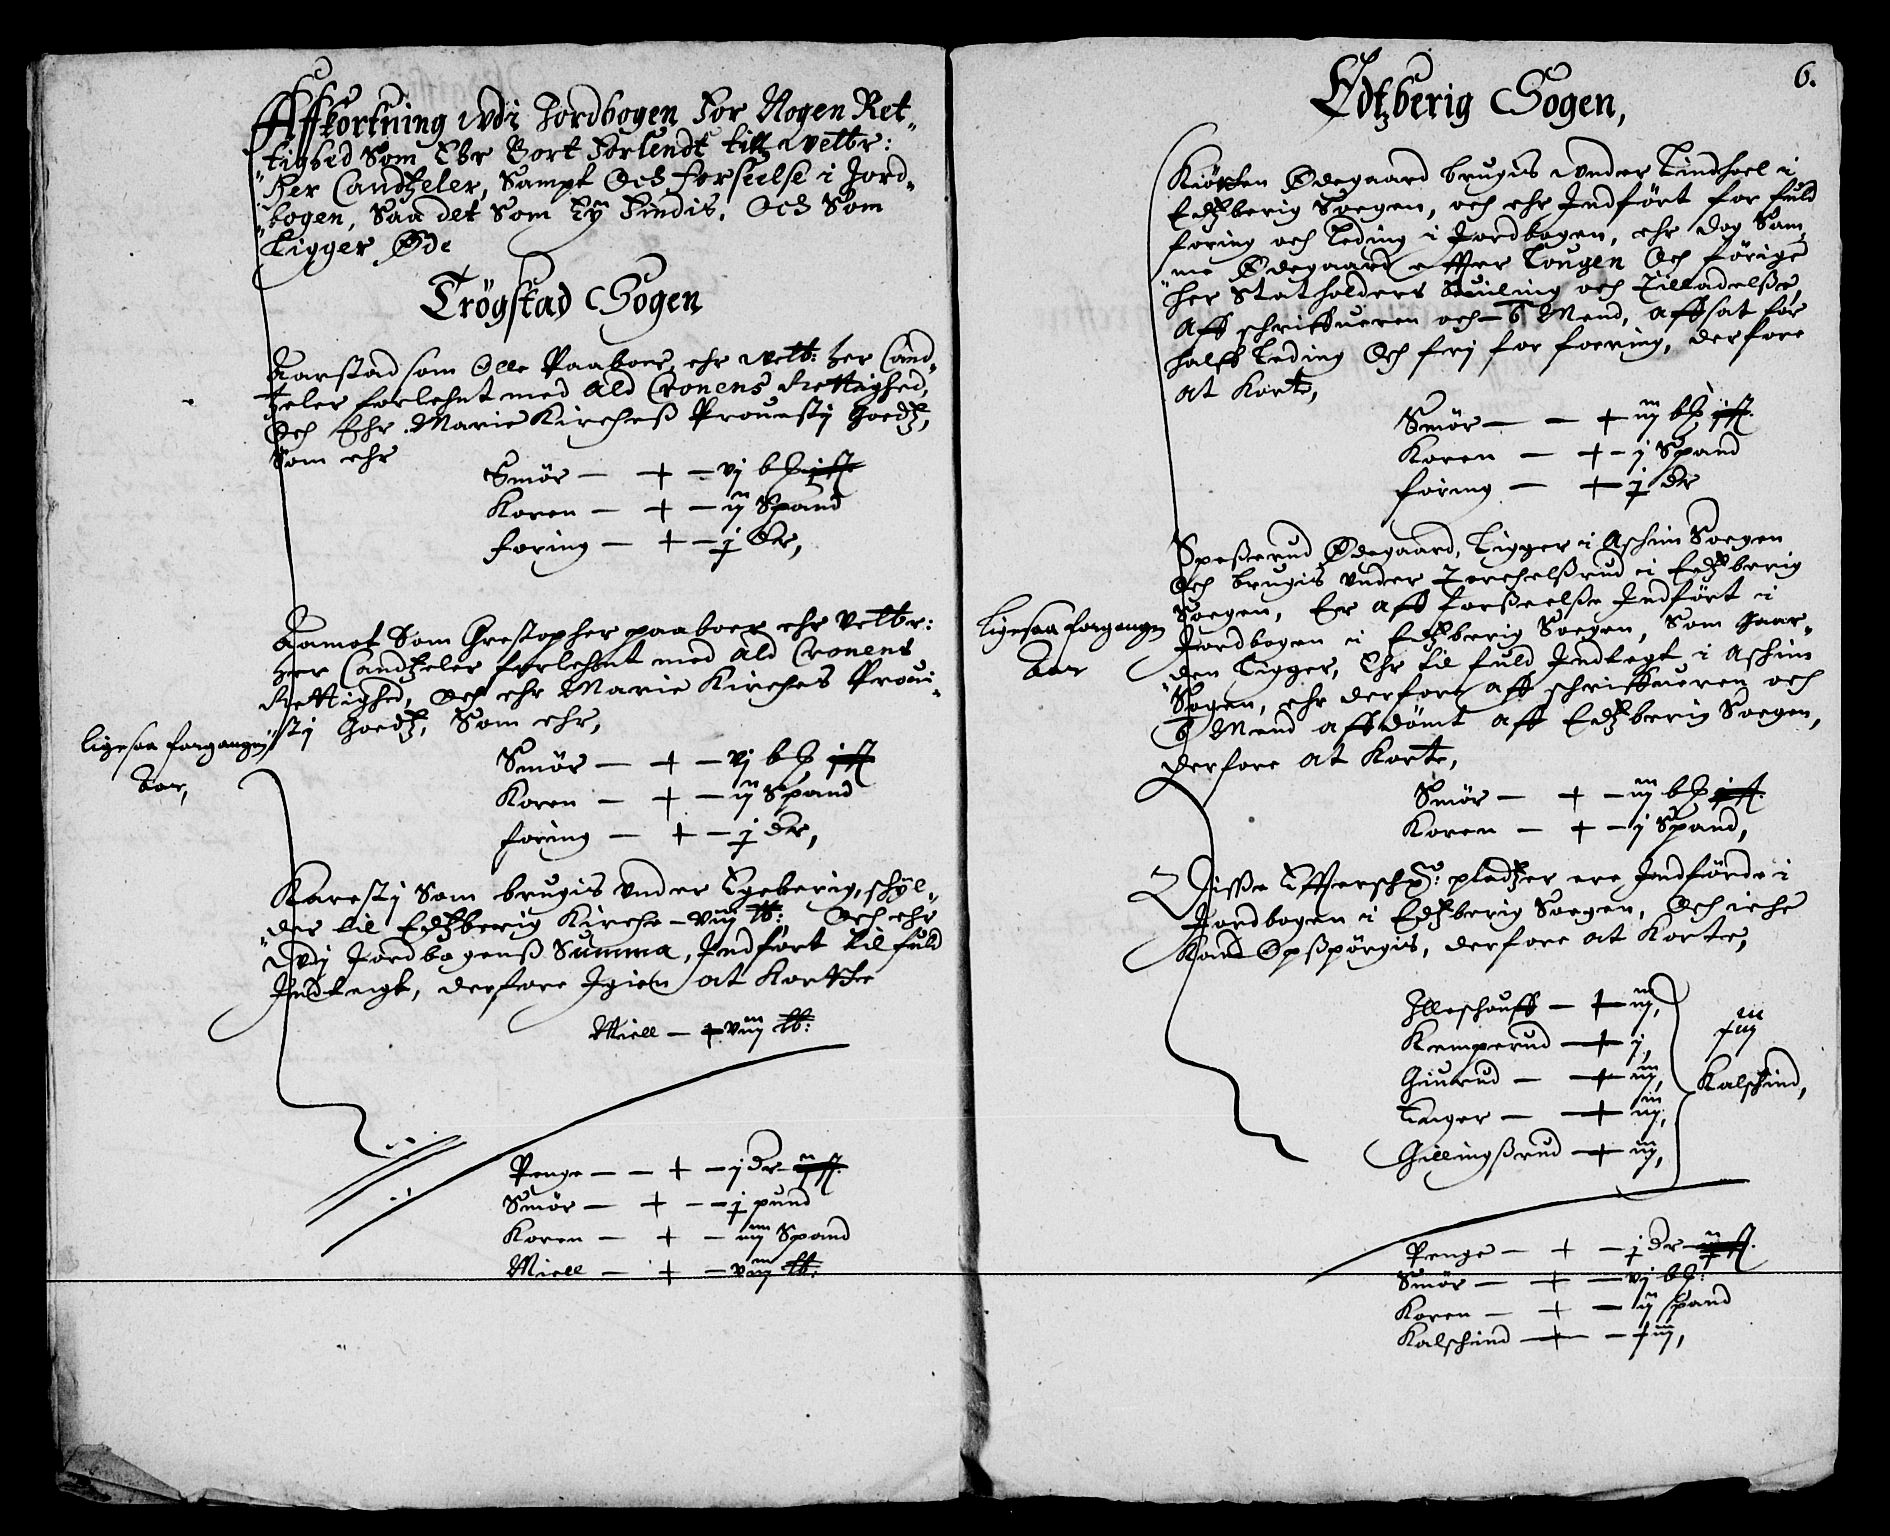 Affkortning wdi Jordbogen For Nogen Ret„
„tighed Som Ehr Bort Forlendt till Welbr:
Her Candtzeler, Sampt Och forseelse i Jord„
„bogen, Saa det Som Ey Findis, Och Som
Ligger Øde
Trögstad Sogen
Aarstad som Olle Paaboer, ehr welb: her Cand„
tzeler forlehnt med Ald Cronens Rettighed,
Och Ehr Marie Kircheß Prouesti Goedtz,
Som ehr
Smör — + — vj bß
Koren — + — ij Spand
foring — + — j Dr,
Aamot Som Chrestopher paaboer ehr Velbr:
her Candtzeler forlehnt med Ald Cronens
Rettighed, Och ehr Marie Kirches Proui„
„stj Goedtz, Som ehr,
ligesaa forgangen
Aar,
Smör — + — vj bß
Koren — + — ij Spand
foring — + — j Dr,
Karestj Som brugis vnder Egeberig, schÿl„
„der til Edtzberig Kirche — viij ℔: Och ehr
wdj Jordbogenß Summa, Indfört til fuld
Indtegt, derfore Igien at Kortte
Miell — + viij ℔:
Penge — — + — j Dr
Smör — + — j pund
Koren — + — iiij Spand
Miell — + — viij ℔:
6.
Edtzberig Sogen,
Ødegaard brugis vnder Lindhoel i
Edtzberig Soegen, och ehr Indfört for fuld
foring och Leding i Jordbogen, ehr dog Sam„
„me Ødegaard effter Lougen Och förige
her Statholders och Tilladelße,
Aff schriffueren och 6 Mend, affsat for
halff Leding Och frj for foering, derfore
at Korte,
Smör — — + iij bß
Koren — + — j Spand
foring — + — j Dr
Speßerud Ødegaard, Ligger i Aschim Soegen
Och brugis vnder Torchelßrud i Edtzberig
Soegen, Er aff forßeelße Indfört i
Jordbogen i Edtzberig Soegen, Som Gaar„
„den Ligger, Ehr til fuld Indtegt i Aschim
Sogen, ehr derfore aff schriffueren och
6 Mend affdömt aff Edtzberig Soegen,
derfore at Korte,
ligesaa forgangen
Aar
Smör — + — iij bß
Koren — + — j Spand,
Disße Effterschr: pladtzer ere Indförde i
Jordbogen i Edtzberig Soegen, Och iche
Kand Opßpörgis, derfore at Korte,
Illeschouff — + iij,
Kemperud — + j,
Giurud — + iij,
Langer — + iij,
Gillingßrud — + iij,
xiij
Kalschind,
Penge — + — j Dr
Smör — + — vj bß:
Koren — + — ij Spand
Kalschind — + — xiij,